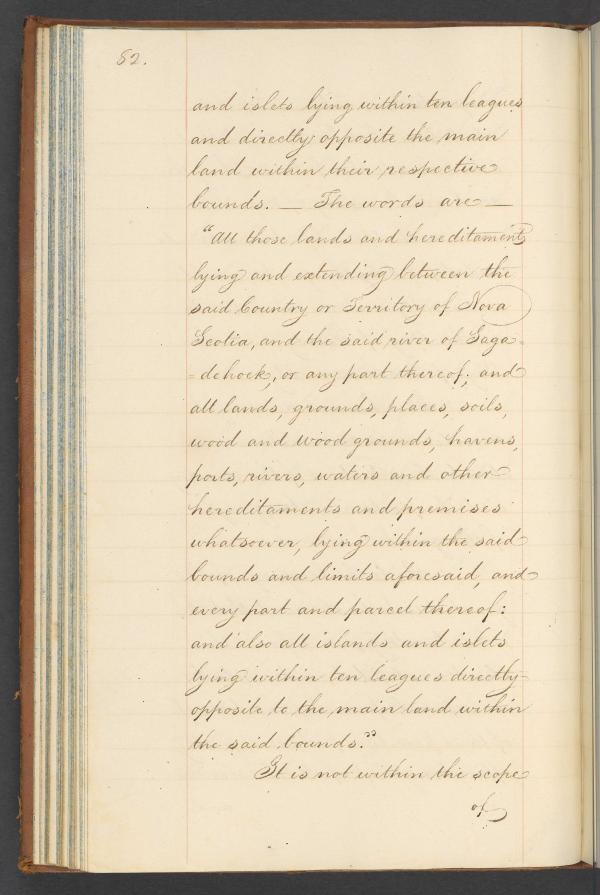 82.
and islets lying within ten leagues
and directly opposite the main
land within their respective
bounds. — The words are —
"All those lands and hereditaments
lying and extending between the
said Country or Territory of Nova
Scotia, and the said river of Saga=
=dehock, or any part thereof; and
all lands, grounds, places, soils,
wood and wood grounds, havens,
ports, rivers, waters and other
hereditaments and premises
whatsoever, lying within the said
bounds and limits aforesaid, and
every part and parcel thereof:
and also all islands and islets
lying within ten leagues directly
opposite to the main land within
the said bounds."
It is not within the scope
of